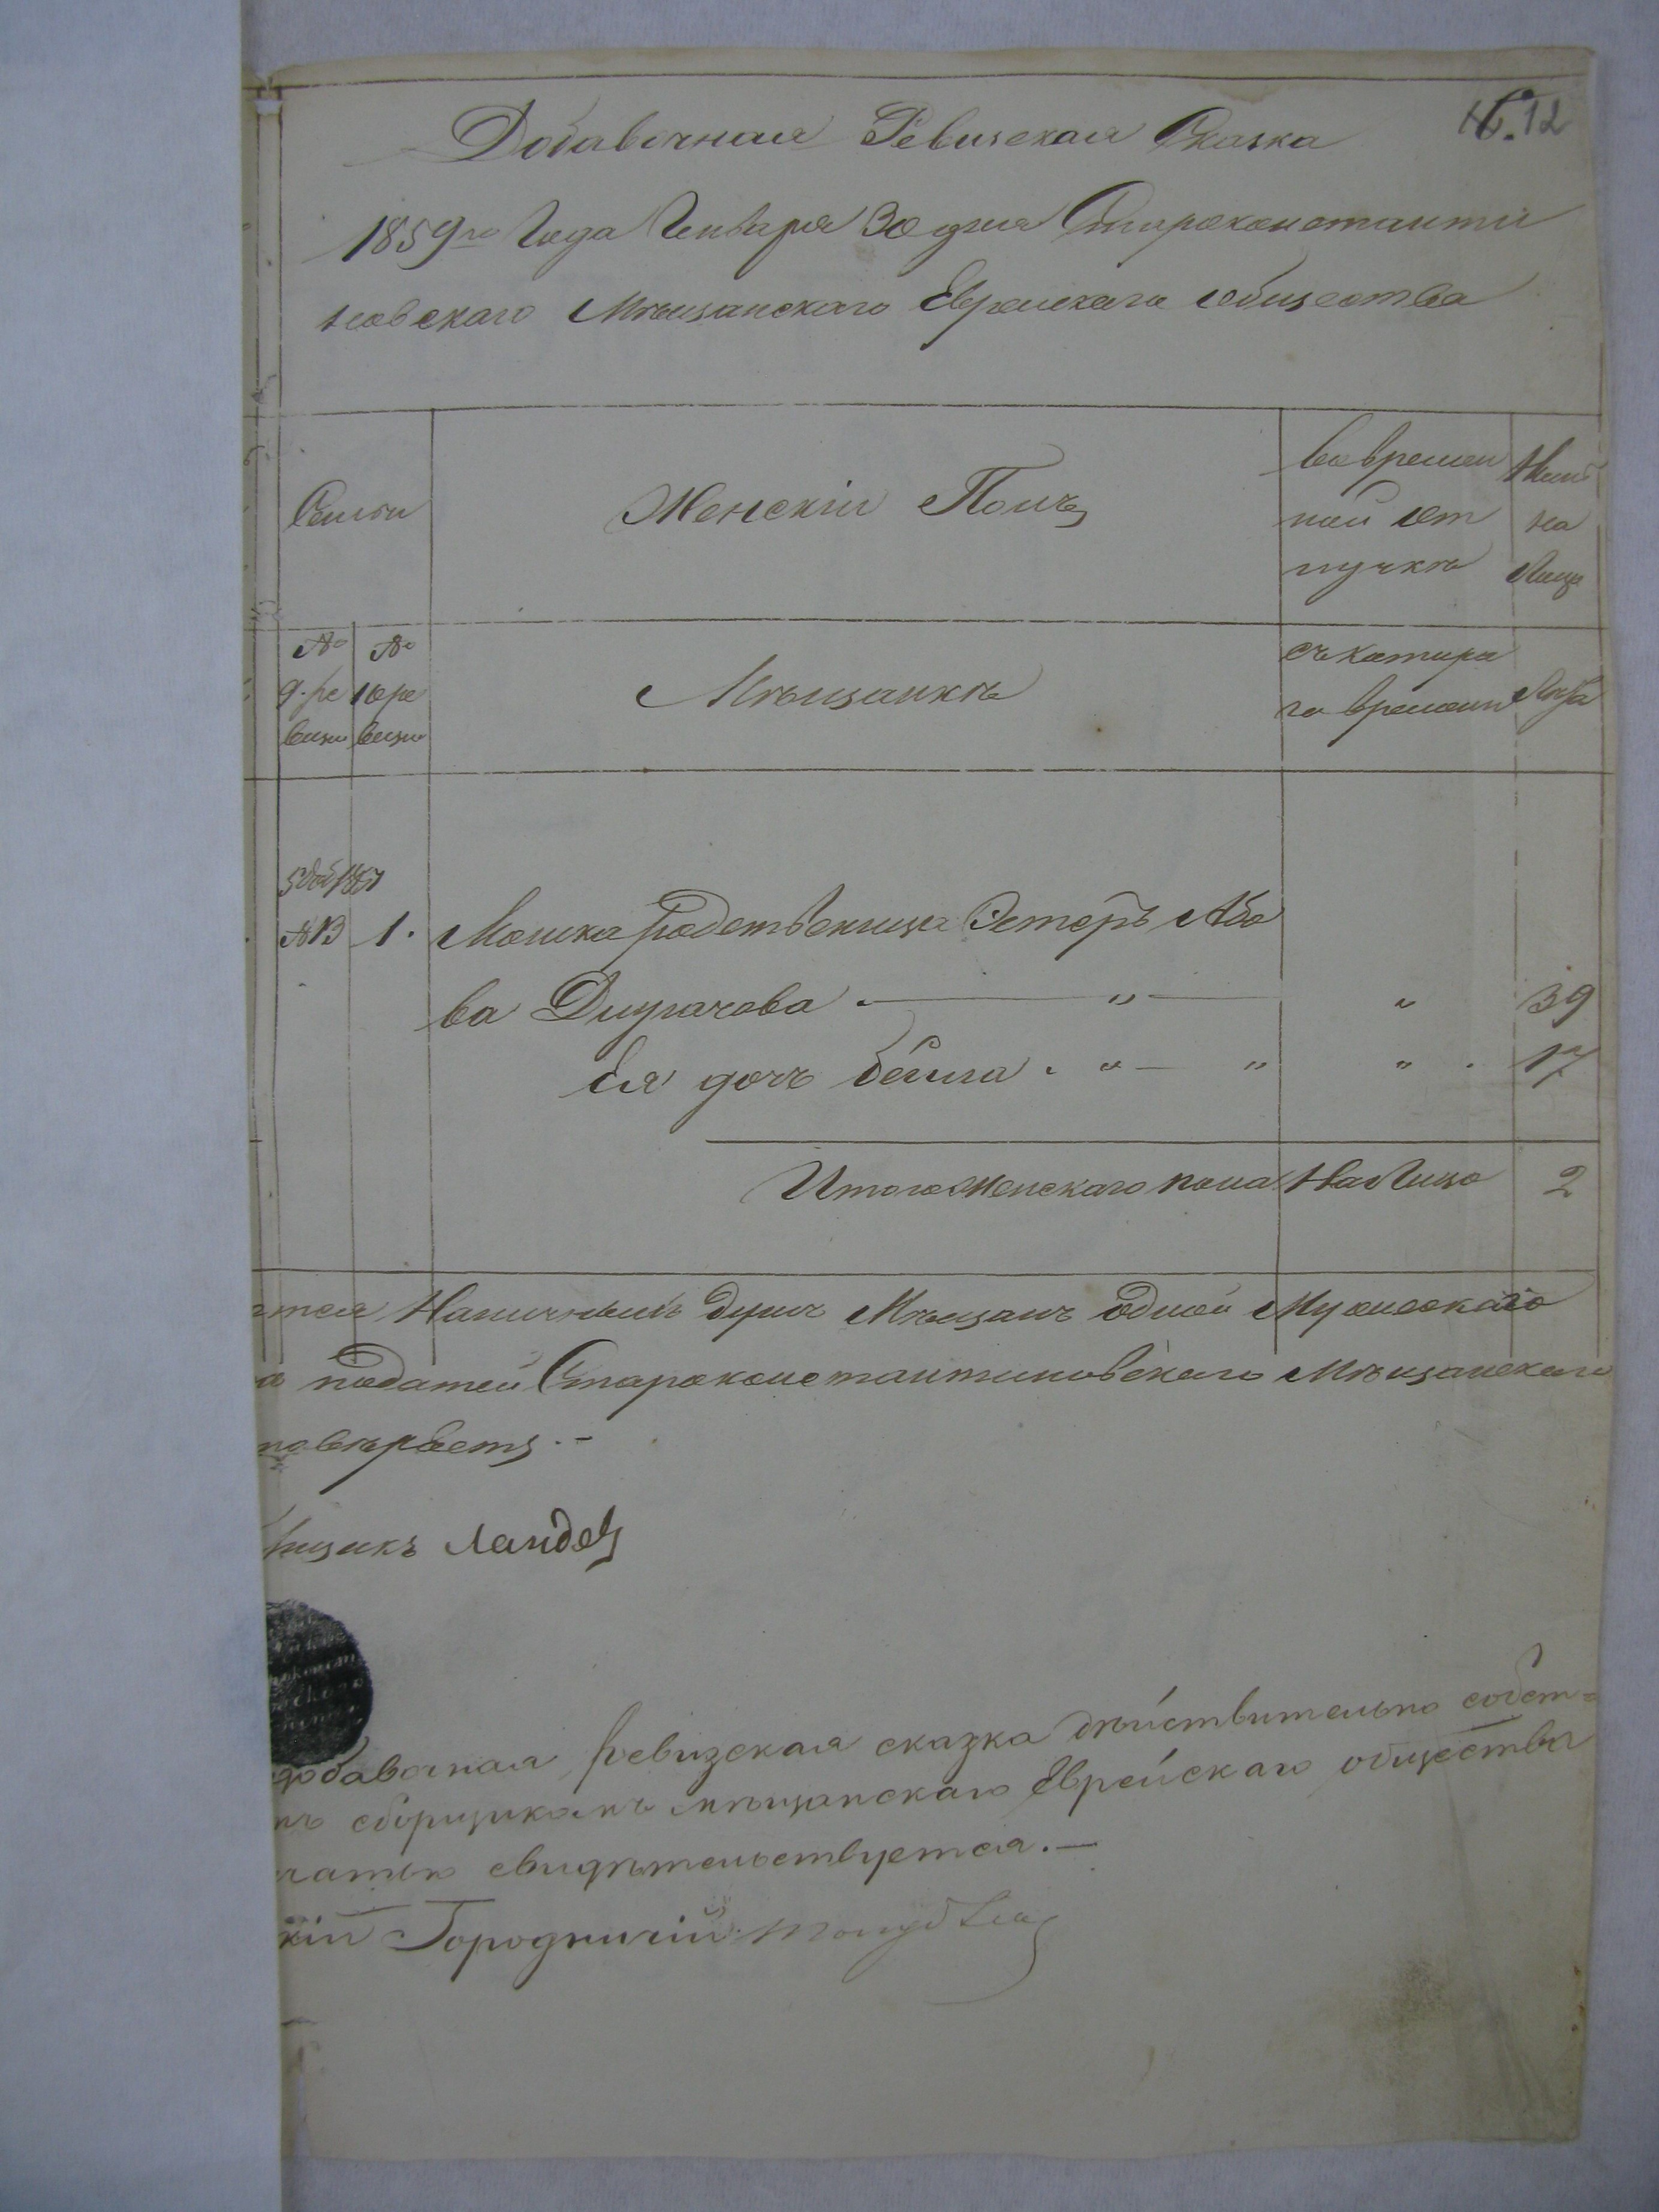 12
Добавочная Ревизская Сказка
1859го Года Генваря 30 дня Староконстанти
новскаго Мѣщанскаго Еврейскаго общества
Семьи
Женскій Полъ
Во времен
ной от
лучкѣ
Ныне
на
Лице
№
9. ре
визіи
№
10 ре
визіи
Мѣщанкѣ
съ котора
го времени
Лѣта
№ 13 1. Мошка родственница Эстеръ Або
ва Дицгачова " " 39
Ея дочь Бейла " " " 17
Итого женскаго пола На Лицо 2
тся Наличныхъ душъ Мѣщанъ одной Мужескаго
податей Староконстантиновскаго Мѣщанскаго
повѣряетъ.
щикъ Ландец
добавочная ревизская сказка дѣйствительно собст-
мъ сборщикомъ мѣщанскаго Еврейскаго общества
чатью свидѣтельствуется.
кій Городничій